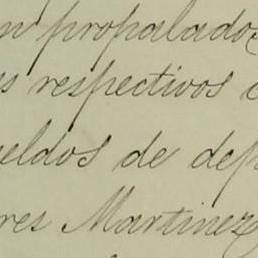 n propalados
s respectivos c
eldos de dep
res Martinez